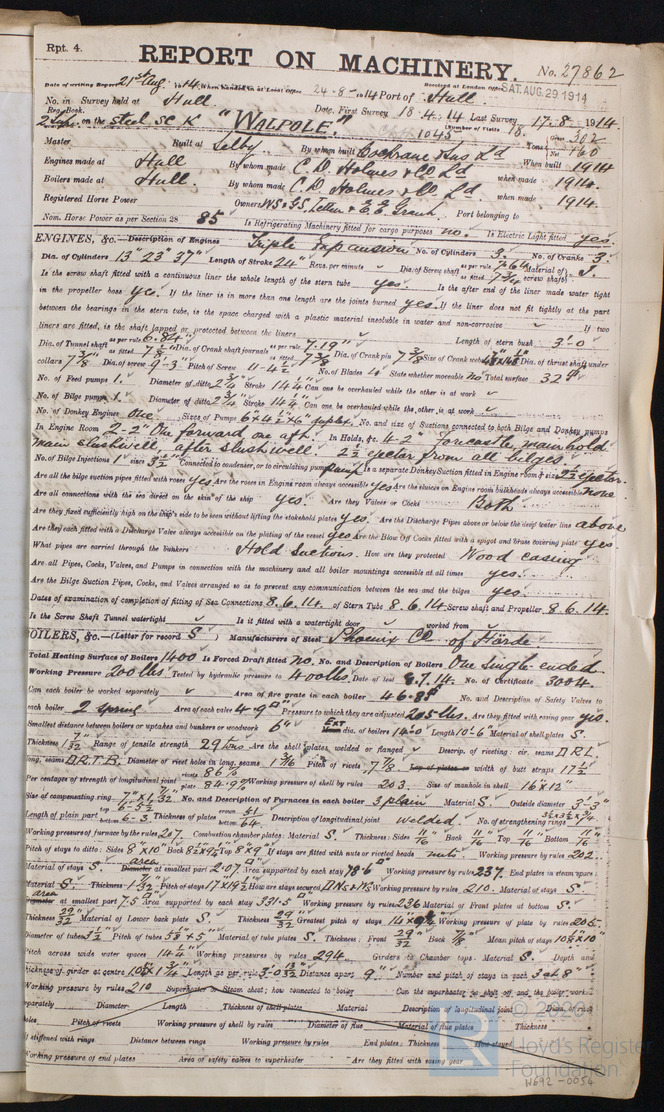 Rpt. 4.
REPORT ON MACHINERY.
No. 27862
Date of writing Report 21st Aug 1914 When handed in at Local Office 24-8-1914 Port of Hull
Received at London Office SAT. AUG. 29 1914
No. in Survey held at Hull Date, First Survey 18.4.14 Last Survey 17-8-1914
Reg. Book. on the Steel SC K "WALPOLE" Number of Visits 78
Gross 302
Net 160
Master Built at Selby By whom built Cochrane & Sons Ld When built 1914
Engines made at Hull By whom made C. D. Holmes & Co Ld when made 1914
Boilers made at Hull. By whom made C. D. Holmes & Co Ld. when made 1914.
Registered Horse Power Owners Port belonging to
Nom. Horse Power as per Section 28 85 Is Refrigerating Machinery fitted for cargo purposes no Is Electric Light fitted yes
ENGINES, &c.—Description of Engines Triple Expansion No. of Cylinders 3. No. of Cranks 3
Dia. of Cylinders 13" 23" 37" Length of Stroke 24" Revs. per minute ✓ Dia. of Screw shaft as per rule 7.64 as fitted 7 3/4 Material of screw shaft S.
Is the screw shaft fitted with a continuous liner the whole length of the stern tube yes Is the after end of the liner made water tight
in the propeller boss yes. If the liner is in more than one length are the joints burned yes If the liner does not fit tightly at the part
between the bearings in the stern tube, is the space charged with a plastic material insoluble in water and non-corrosive ✓ If two
liners are fitted, is the shaft lapped or protected between the liners ✓ Length of stern bush 3'-0
Dia. of Tunnel shaft as per rule 6.84" as fitted 7 1/8 Dia. of Crank shaft journals as per rule 7.19" as fitted 7 3/8 Dia. of Crank pin 7 3/8 Size of Crank webs Dia. of thrust shaft under
collars 7 3/8 Dia. of screw 9'-3" Pitch of Screw 11-4 1/2 No. of Blades 4 State whether moveable no Total surface 32
No. of Feed pumps 1. Diameter of ditto 2 3/4 Stroke 14 1/4 Can one be overhauled while the other is at work ✓
No. of Bilge pumps 1. Diameter of ditto 2 3/4 Stroke 14 1/4 Can one be overhauled while the other is at work ✓
No. of Donkey Engines One Sizes of Pumps 6"x4 1/2"x6" duplex No. and size of Suctions connected to both Bilge and Donkey pumps
In Engine Room 2-2" One forward one aft. In Holds, &c. 4-2" forecastle, main hold
main slushwell after slushwell. 2 1/2 ejector from all bilges
No. of Bilge Injections 1 sizes 3 1/2 Connected to condenser, or to circulating pump pump Is a separate Donkey Suction fitted in Engine room & size 2 1/2 ejector.
Are all the bilge suction pipes fitted with roses yes Are the roses in Engine room always accessible yes Are the sluices on Engine room bulkheads always accessible none
Are all connections with the sea direct on the skin of the ship yes. Are they Valves or Cocks Both
Are they fixed sufficiently high on the ship's side to be seen without lifting the stokehold plates yes. Are the Discharge Pipes above or below the deep water line above
Are they each fitted with a Discharge Valve always accessible on the plating of the vessel yes Are the Blow Off Cocks fitted with a spigot and brass covering plate yes
What pipes are carried through the bunkers Hold Suctions. How are they protected Wood casing
Are all Pipes, Cocks, Valves, and Pumps in connection with the machinery and all boiler mountings accessible at all times yes.
Are the Bilge Suction Pipes, Cocks, and Valves arranged so as to prevent any communication between the sea and the bilges yes.
Dates of examination of completion of fitting of Sea Connections 8.6.14. of Stern Tube 8.6.14. Screw shaft and Propeller 8.6.14.
Is the Screw Shaft Tunnel watertight ✓ Is it fitted with a watertight door ✓ worked from
OILERS, &c.—(Letter for record S) Manufacturers of Steel Phoenix Co of Hörde
Total Heating Surface of Boilers 1400 Is Forced Draft fitted no. No. and Description of Boilers One single ended
Working Pressure 200 lbs Tested by hydraulic pressure to 400 lbs. Date of test 8.7.14. No. of Certificate 3004.
Can each boiler be worked separately ✓ Area of fire grate in each boiler 46.85 No. and Description of Safety Valves to
each boiler 2 Spring Area of each valve 4.9 Pressure to which they are adjusted 205 lbs. Are they fitted with easing gear yes.
Smallest distance between boilers or uptakes and bunkers or woodwork 6" EXT dia. of boilers 14-0 Length 10-6" Material of shell plates S.
Thickness 1 7/32 Range of tensile strength 29 tons Are the shell plates welded or flanged ✓ Descrip. of riveting: cir. seams D.R.L.
long. seams D.R.T.B. Diameter of rivet holes in long. seams 1 3/16 Pitch of rivets 7 7/8 Lap of plates or width of butt straps 17 1/2
Per centages of strength of longitudinal joint rivets 86 plate 84.9 Working pressure of shell by rules 203. Size of manhole in shell 16"x12"
Size of compensating ring No. and Description of Furnaces in each boiler 3 plain Material S. Outside diameter 3'-3"
Length of plain part top 6-5 1/2 bottom 6-3. Thickness of plates crown 51/64 bottom Description of longitudinal joint welded. No. of strengthening rings
Working pressure of furnace by the rules 207. Combustion chamber plates: Material S. Thickness: Sides 11/16 Back 11/16 Top 11/16 Bottom 11/16
Pitch of stays to ditto: Sides 8"x10" Back 8 1/2"x9 1/2" Top 8"x9" If stays are fitted with nuts or riveted heads nuts. Working pressure by rules 202.
Material of stays S. area Diameter at smallest part 2.07 Area supported by each stay 78.6 Working pressure by rules 237. End plates in steam space:
Material S. Thickness 1 7/32 Pitch of stays 17"x19 1/2 How are stays secured D.N.s & W.s Working pressure by rules 210. Material of stays S.
area Diameter at smallest part 7.5 Area supported by each stay 331.5 Working pressure by rules 236 Material of Front plates at bottom S.
Thickness 29/32 Material of Lower back plate S. Thickness 29/32 Greatest pitch of stays Working pressure of plate by rules 205.
Diameter of tubes 3 1/2 Pitch of tubes Material of tube plates S. Thickness: Front 29/32 Back 7/8 Mean pitch of stays
Pitch across wide water spaces 14 1/4 Working pressures by rules 294 Girders to Chamber tops: Material S. Depth and
thickness of girder at centre Length as per rule Distance apart 9" Number and pitch of stays in each 3 at 8"
Working pressure by rules 210 Superheater or Steam chest; how connected to boiler Can the superheater be shut off and the boiler worked
separately Diameter Length Thickness of shell plates Material Description of longitudinal joint Diam. of rivet
holes Pitch of rivets Working pressure of shell by rules Diameter of flue Material of flue plates Thickness
If stiffened with rings Distance between rings Working pressure by rules End plates: Thickness How stayed
Working pressure of end plates Area of safety valves to superheater Are they fitted with easing gear
© 2020
Lloyd's Register
Foundation
W692-0054